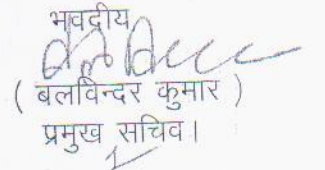 भवदीय
( बलविन्दर कुमार )
प्रमुख सचिव।